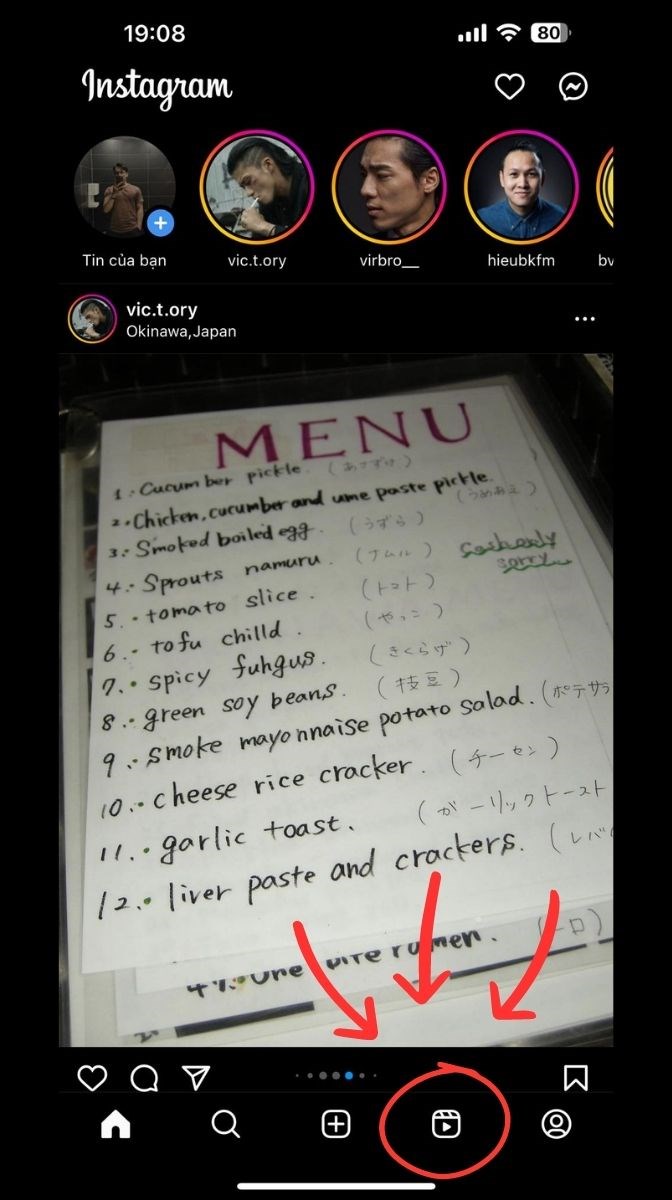 19:08
80
Instagram
Tin của bạn
vic.t.ory
virbro__
hieubkfm
bv
vic.t.ory
Okinawa,Japan
MENU
1. Cucumber pickle. (あさづけ)
2. Chicken, cucumber and ume paste pickle.
(うめあえ)
3. Smoked boiled egg. (うずら)
4. Sprouts namuru. (ナムル)
sorry
5. tomato slice. (トマト)
6. tofu chilld. (やっこ)
7. spicy fuhgus. (きくらげ)
8. green soy beans. (枝豆)
9. smoke mayonnaise potato salad. (ポテサラ
10. cheese rice cracker. (チーセン)
11. garlic toast. (ガーリックトースト
12. liver paste and crackers. (レバ
One bite ramen. (一口)